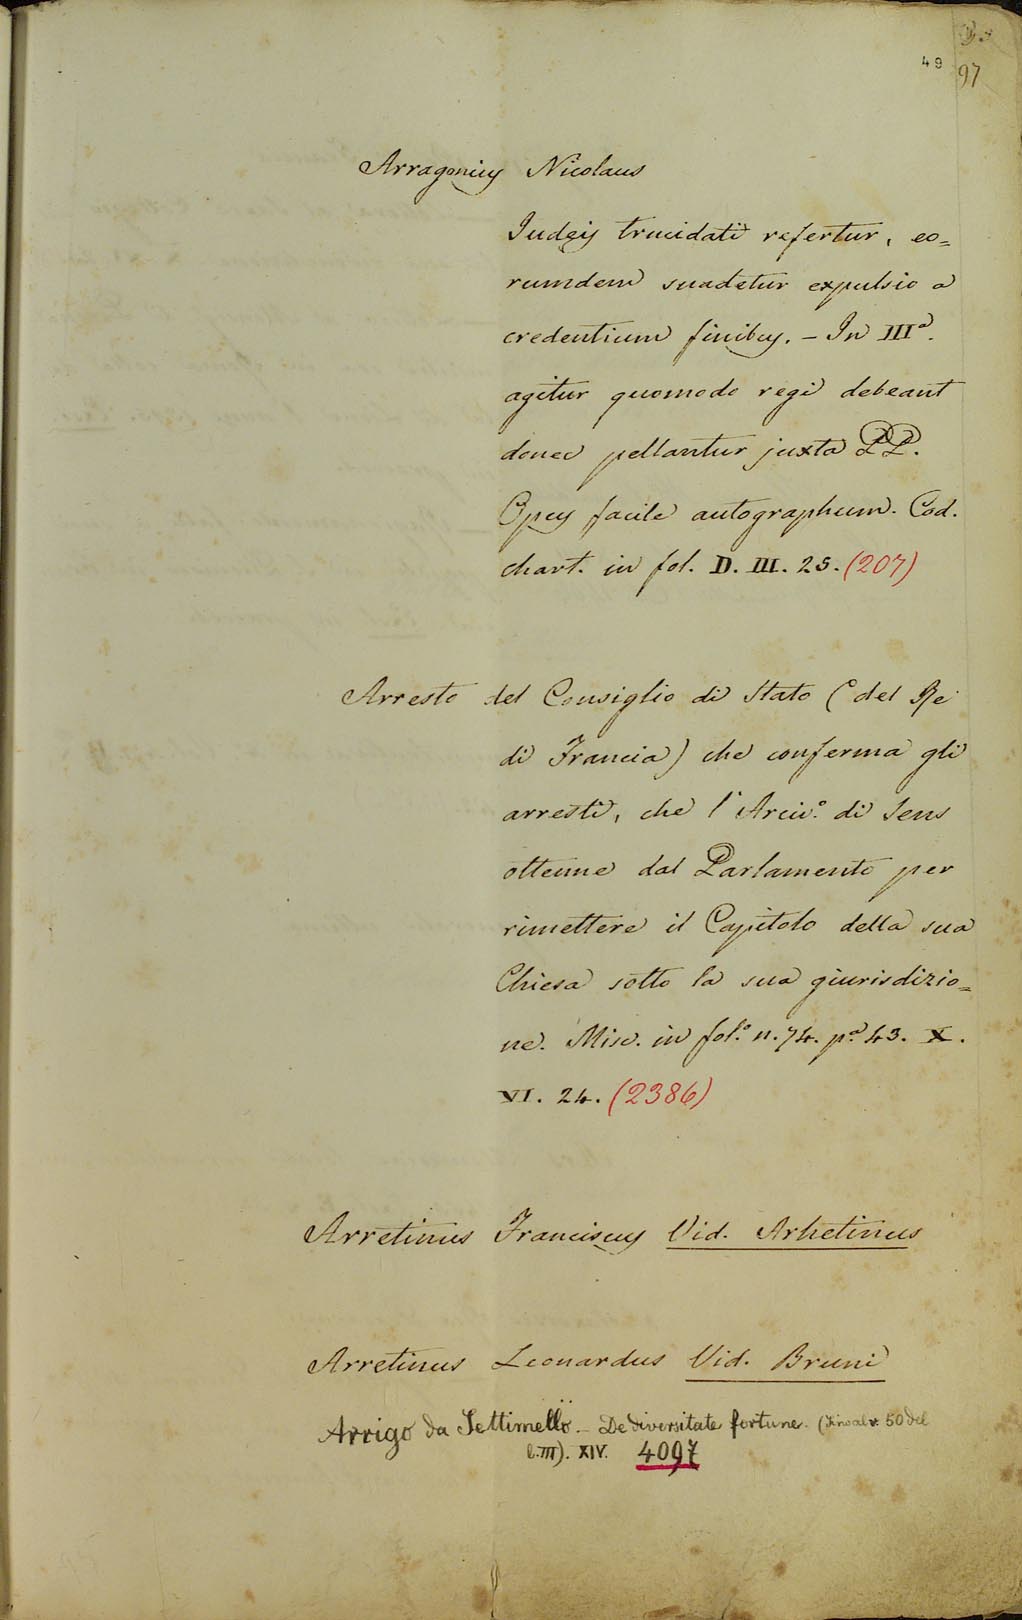 49
97
Arragonius Nicolaus
Judęis trucidati refertur, eo=
rumdem suadetur expulsio a
credentium finibus. – In IIIª.
agitur quomodo regi debeant
donec pellantur juxta PP.
Opus facile autographum. Cod.
chart. in fol. D. III. 25. (207)
Arresto del Consiglio di Stato (del Re
di Francia) che conferma gli
arresti, che l'Arciv.º di Sens
ottenne dal Parlamento per
rimettere il Capitolo della sua
Chiesa sotto la sua giurisdizio=
ne. Misc. in fol.º n. 74. pª 43. X.
VI. 24. (2386)
Arretinus Franciscus Vid. Arhetinus
Arretinus Leonardus Vid. Bruni
Arrigo da Settimello – De diversitate fortune. (sino al v. 50 del
l. III). XIV. 4097